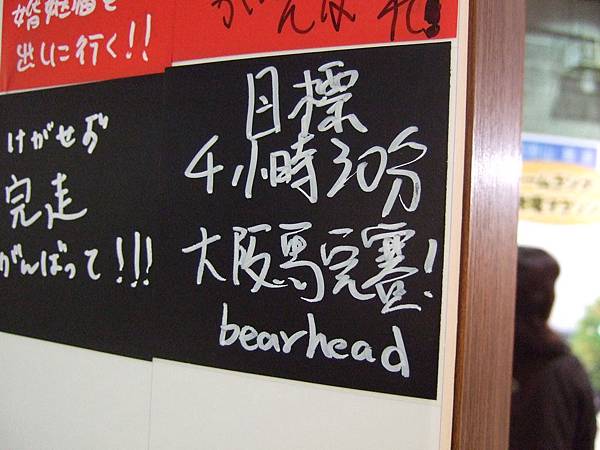 婚姻届を
出しに行く!!
がんばれ!
けがせず
完走
がんばって!!!
目標
4小時30分
大阪馬完賽!
bearhead